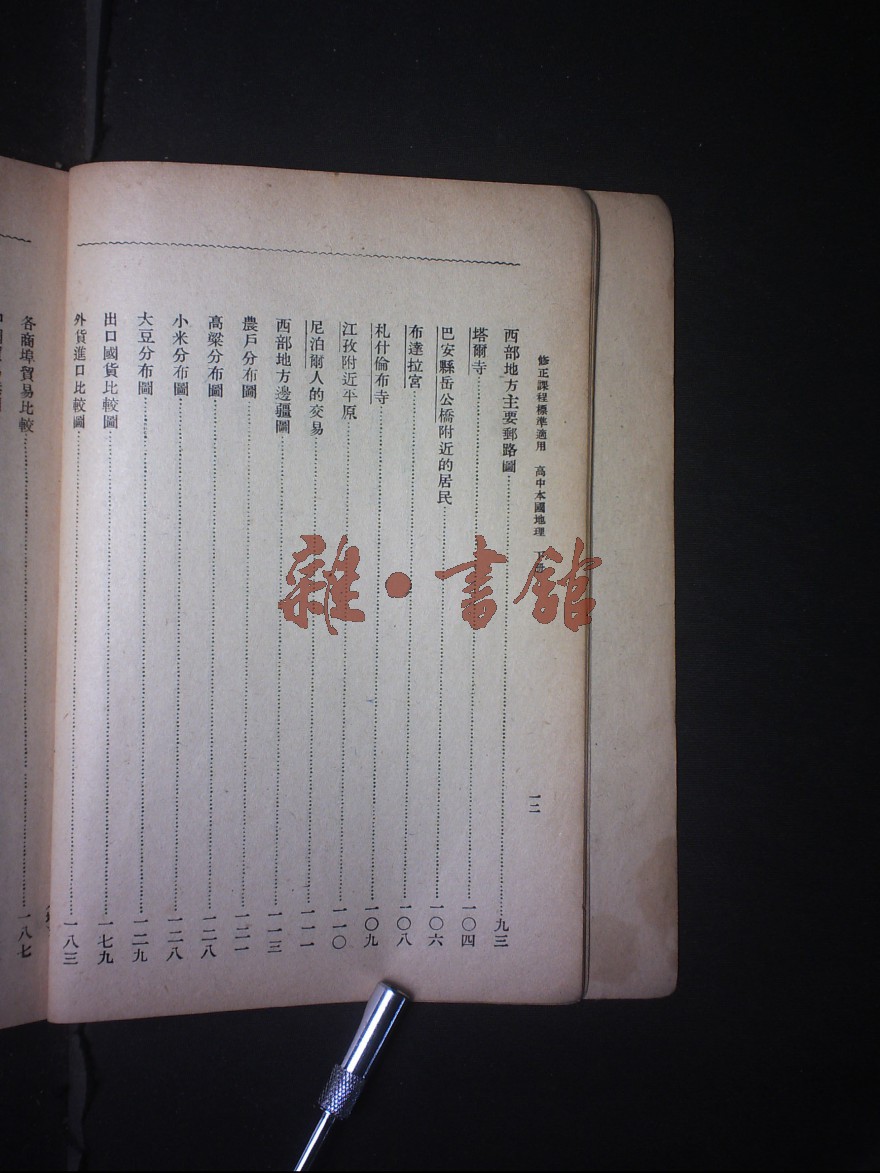 修正課程標準適用 高中本國地理 下冊
一二
西部地方主要郵路圖……九三
塔爾寺……一〇四
巴安縣岳公橋附近的居民……一〇六
布達拉宮……一〇八
札什倫布寺……一〇九
江孜附近平原……一一〇
尼泊爾人的交易……一一一
西部地方邊疆圖……一一三
農戶分布圖……一二一
高粱分布圖……一二八
小米分布圖……一二八
大豆分布圖……一二九
出口國貨比較圖……一七九
外貨進口比較圖……一八三
各商埠貿易比較……一八七
雜·書館